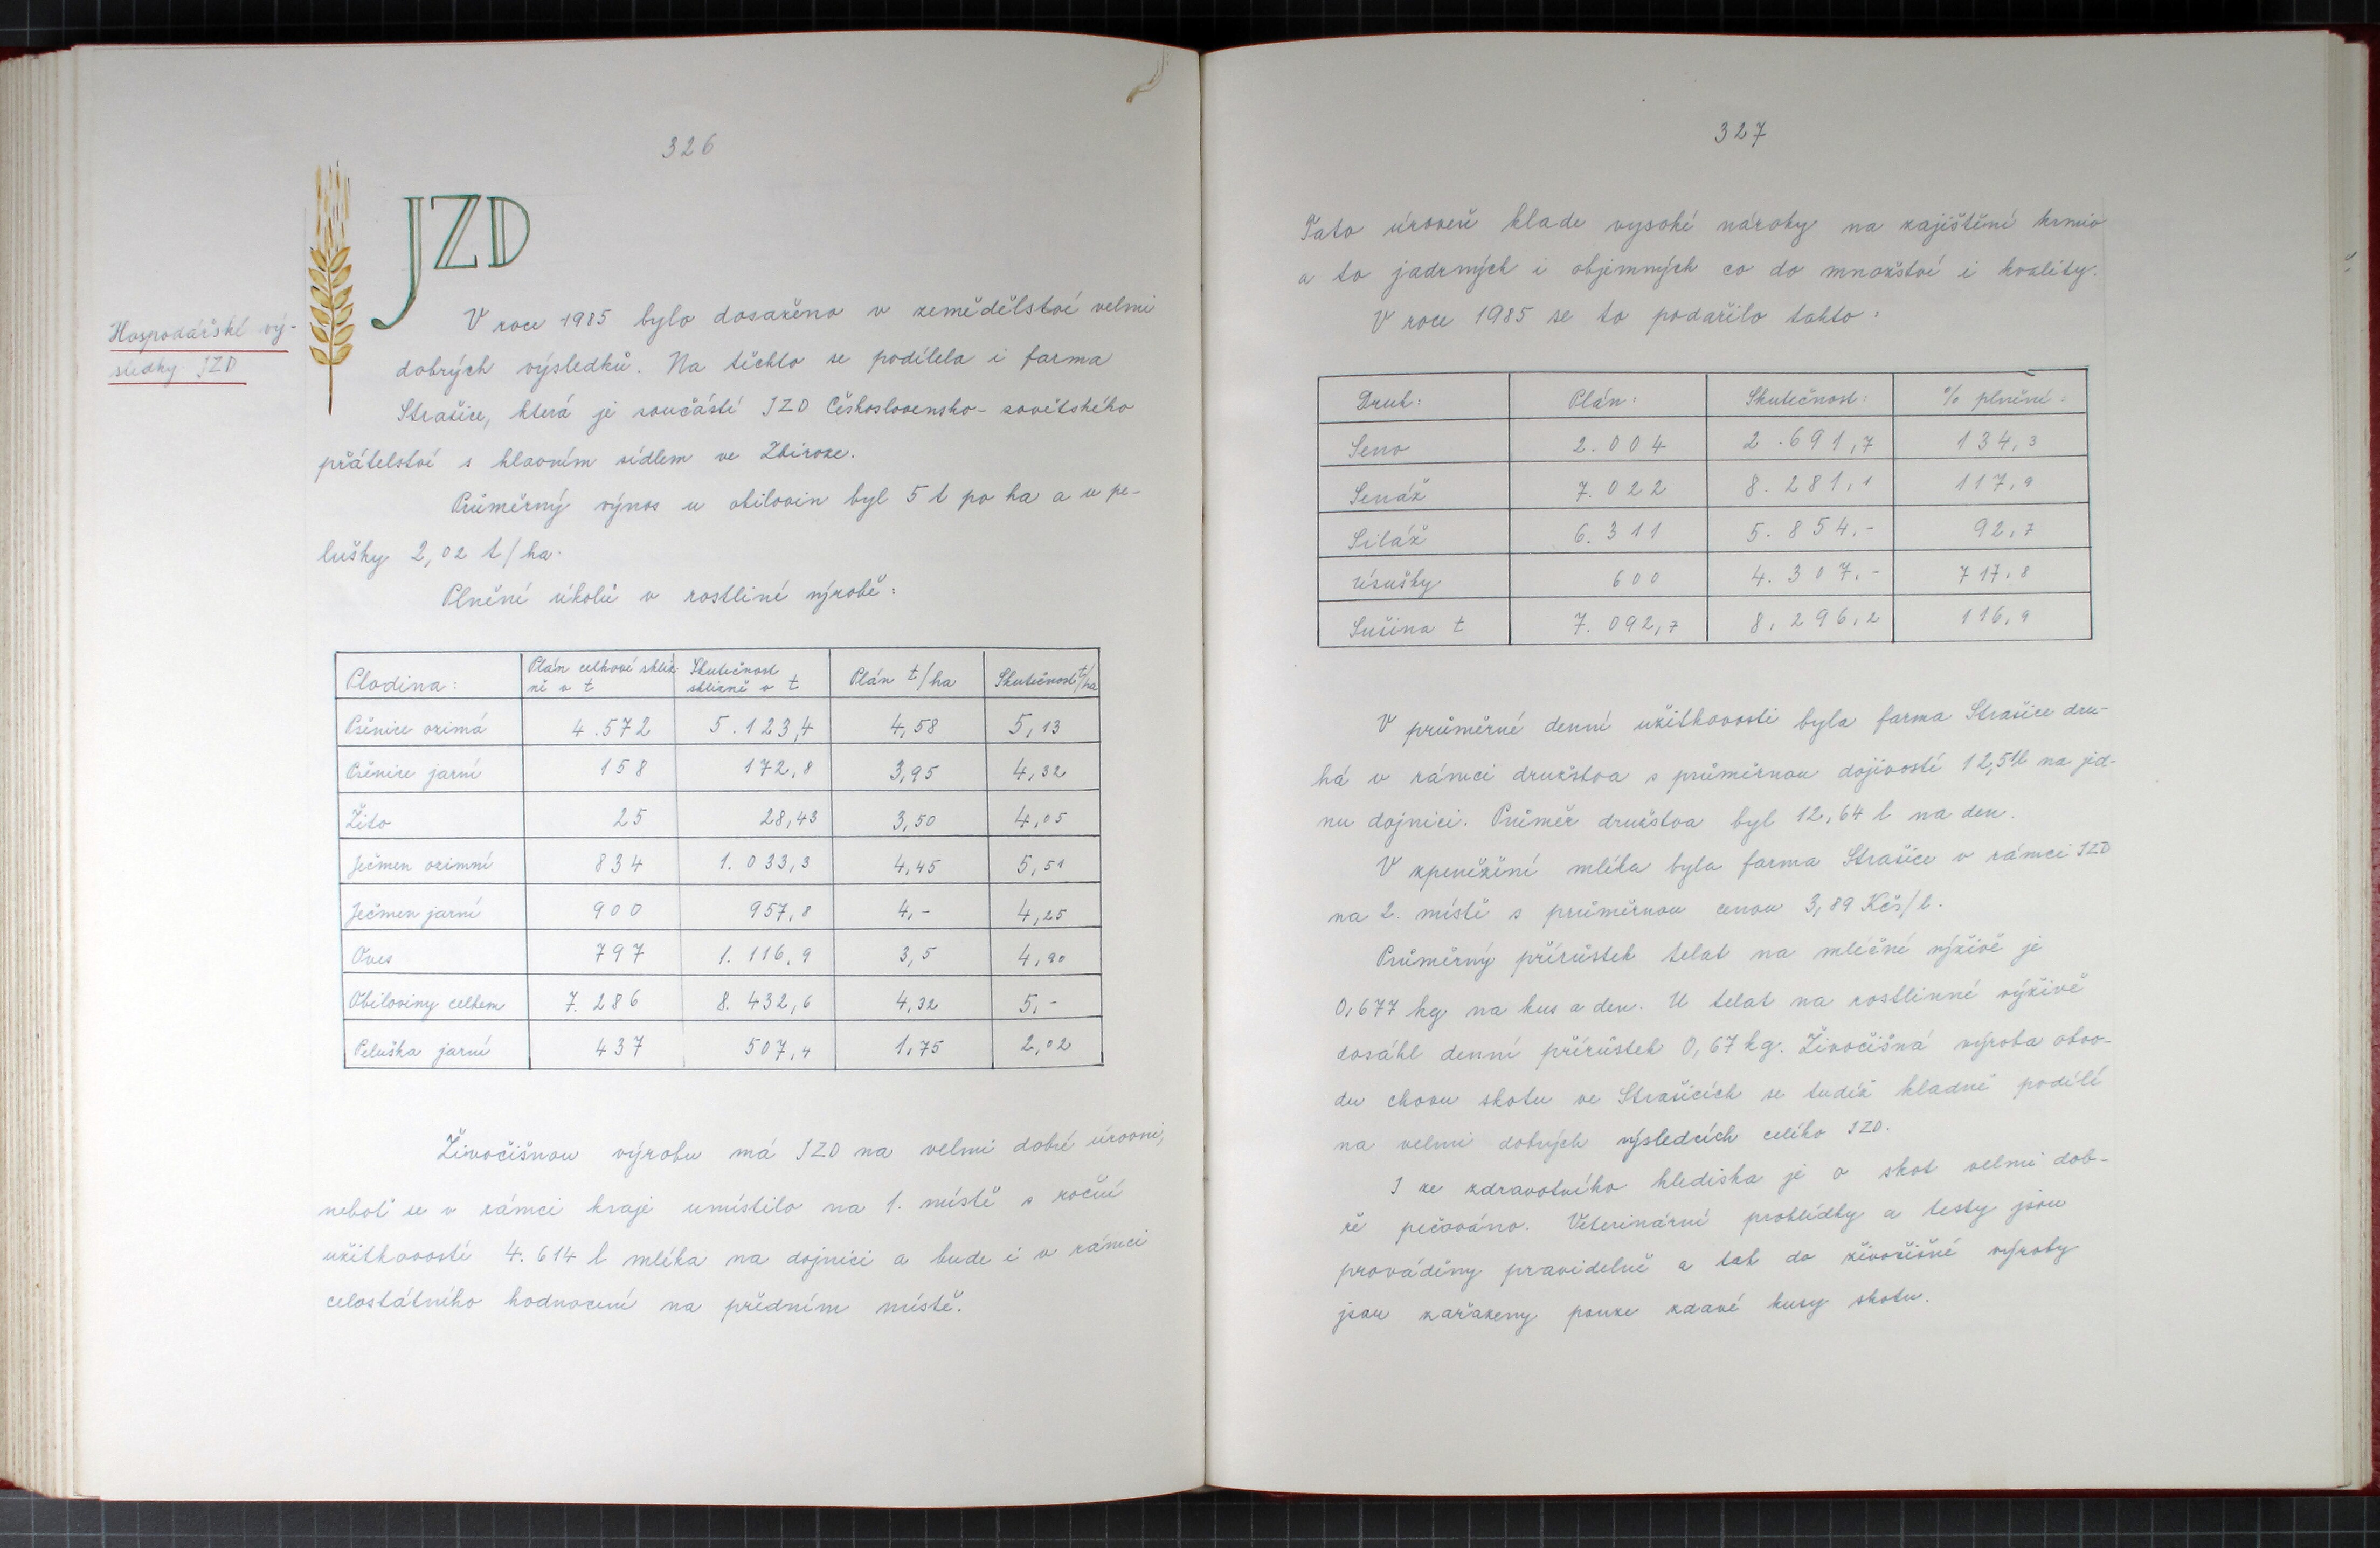 326
JZD
Hospodářské vý-
sledky JZD
V roce 1985 bylo dosaženo v zemědělství velmi
dobrých výsledků. Na těchto se podílela i farma
Strašice, která je součástí JZD Československo-sovětského
přátelství s hlavním sídlem ve Zbiroze.
Průměrný výnos u obilovin byl 5 t po ha a u pe-
lušky 2,02 t/ha.
Plnění úkolů v rostliné výrobě:
Plodina: Plán celkové skliz- Skutečnost Plán t/ha Skutečnost t/ha
ně v t sklizně v t
Pšenice ozimá 4.572 5.123,4 4,58 5,13
Pšenice jarní 158 172,8 3,95 4,32
Žito 25 28,43 3,50 4,05
Ječmen ozimní 834 1.033,3 4,45 5,51
Ječmen jarní 900 957,8 4,- 4,25
Oves 797 1.116,9 3,5 4,90
Obiloviny celkem 7.286 8.432,6 4,32 5,-
Peluška jarní 437 507,4 1,75 2,02
Živočišnou výrobu má JZD na velmi dobré úrovni,
neboť se v rámci kraje umístilo na 1. místě s roční
užitkovostí 4.614 l mléka na dojnici a bude i v rámci
celostátního hodnocení na předním místě.
327
Tato úroveň klade vysoké nároky na zajištění krmiv
a to jadrných i objemných co do množství i kvality.
V roce 1985 se to podařilo takto:
Druh: Plán: Skutečnost: % plnění:
Seno 2.004 2.691,7 134,3
Senáž 7.022 8.281,1 117,9
Siláž 6.311 5.854,- 92,7
Úsušky 600 4.307,- 717,8
Sušina t 7.092,7 8,296,2 116,9
V průměrné denní užitkovosti byla farma Strašice dru-
há v rámci družstva s průměrnou dojivostí 12,51l na jed-
nu dojnici. Průměr družstva byl 12,64 l na den.
V zpeněžení mléka byla farma Strašice v rámci JZD
na 2. místě s průměrnou cenou 3,89 Kčs/l.
Průměrný přírůstek telat na mléčné výživě je
0,677 kg na kus a den. U telat na rostlinné výživě
dosáhl denní přírůstek 0,67 kg. Živočišná výroba obvo-
du chovu skotu ve Strašicích se tudíž kladně podílí
na velmi dobrých výsledcích celého JZD.
I ze zdravotního hlediska je o skot velmi dob-
ře pečováno. Veterinární prohlídky a testy jsou
prováděny pravidelně a tak do živočišné výroby
jsou zařazeny pouze zdavé kusy skotu.